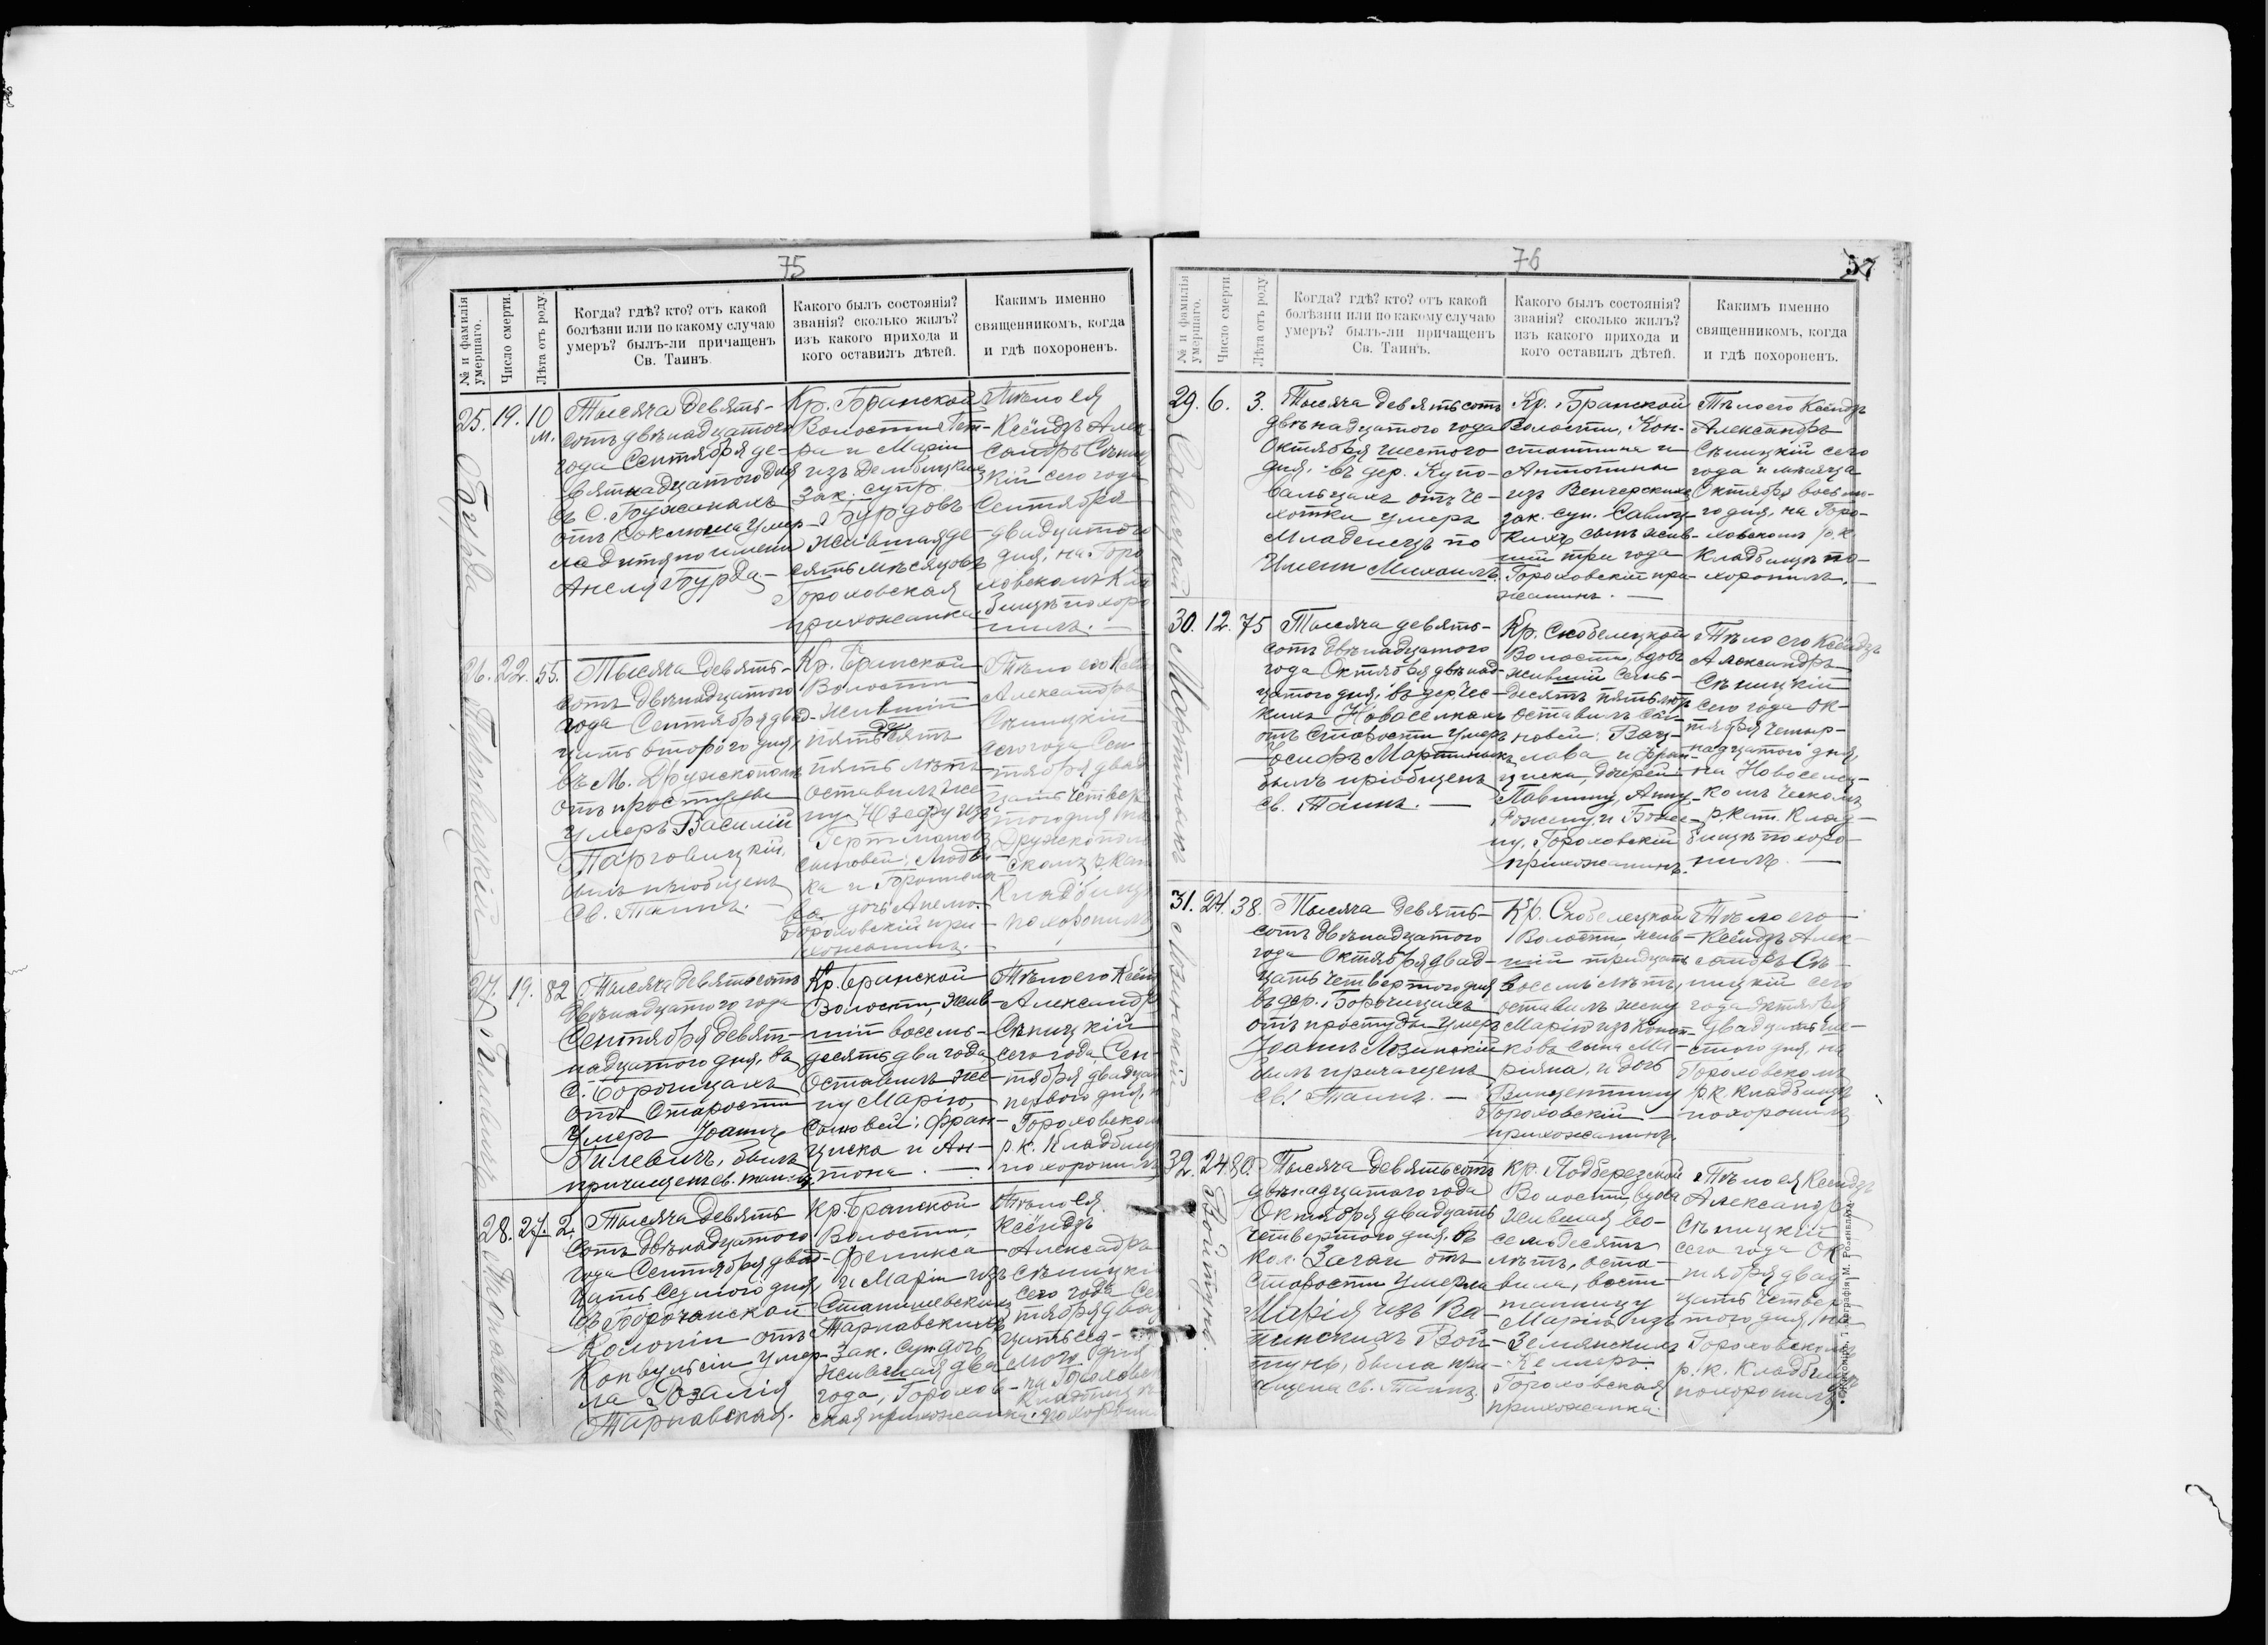 75
№ и фамилія умершаго.
Число смерти.
Лѣта отъ роду.
Когда? гдѣ? кто? отъ какой
болѣзни или по какому случаю
умеръ? былъ-ли причащенъ
Св. Таинъ.
Какого былъ состоянія?
званія? сколько жилъ?
изъ какого прихода и
кого оставилъ дѣтей.
Какимъ именно
священникомъ, когда
и гдѣ похороненъ.
25. 19. 10 м.
Бурда
Тысяча девять-
сотъ двѣнадцатого
года Сентября де-
вятнадцатого дня
въ с. Бужанахъ
отъ коклюша умер-
ла дитя по имени
Анеля Бурда.
Кр. Бранской
Волости Пет-
ра и Маріи
изъ Дембицкихъ
зак. супр.
Бурдовъ
жившая де-
сять мѣсяцовъ
Гороховская
прихожанка
Тѣло ея
Ксёндзъ Алек-
сандръ Сѣниц-
кій сего года
Сентября
двадцатого
дня, на Горо
ховскомъ Кла
бищѣ похоро
нилъ.
26. 22. 55.
Тысяча девять-
сотъ двѣнадцатого
года Сентября двад-
цать второго дня,
въ М. Дружкополѣ
отъ простуды
умеръ Василій
Парговицкій,
былъ пріобщенъ
Св. Таинъ.
Кр. Бранской
Волости
жившій
пятьдесятъ
пять лѣтъ
оставилъ же-
ну Юзефу изъ
Гертмановъ
сыновей: Людви-
ка и Бронисла-
ва дочь Анелю.
Гороховскій при-
хожанинъ.
Тѣло его
Александръ
Сѣницкій
сего года Сен-
тября двад
цать четвер
того дня, на
Дружкополь
скомъ р. кат
Кладбищѣ
похоронилъ
27. 19. 82
Гилевичъ
Тысяча девятьсотъ
двѣнадцатого года
Сентября девят-
надцатого дня, въ
с. Борочицахъ
отъ Старости
умеръ Іоаннъ
Гилевичъ, былъ
причащенъ св. таинъ.
Кр. Бранской
Волости, жив-
шій восемь-
десятъ два года
Оставилъ же-
ну Марію,
Сыновей: Фран-
циска и Ан-
тона.
Тѣло его Ксён
Александръ
Сѣницкій
сего года Сен-
тября двадца
перваго дня, н
Гороховском
р. к. Кладбищ
похоронилъ
28. 27. 2.
Тарнавская
Тысяча девять
сотъ двѣнадцатого
года Сентября двад-
цать седьмого дня,
въ Борочанской
Колоніи отъ
Конвульсіи умер-
ла Розалія
Тарнавская.
Кр. Бранской
Волости,
Феликса
и Маріи изъ
Станишевскихъ
Тарнавскихъ
зак. суп. дочь
жившая два
года, Горохов-
ская прихожанка.
Тѣло ея
Ксёндзъ
Алексадръ
Сѣницкі
сего года Се
тября двад
цать сед-
мого дня
на Гороховск
Кладбищѣ
похорони
76
57
№ и фамилія умершаго.
Число смерти
Лѣта отъ роду
Когда? гдѣ? кто? отъ какой
болѣзни или по какому случаю
умеръ? былъ-ли причащенъ
Св. Таинъ.
Какого былъ состоянія?
званія? сколько жилъ?
изъ какого прихода и
кого оставилъ дѣтей.
Какимъ именно
священникомъ, когда
и гдѣ похороненъ.
29. 6. 3.
Савицкій
Тысяча девятьсотъ
двѣнадцатого года
Октября шестого
дня, въ дер. Купо-
вальцахъ отъ че-
хотки умеръ
Младенецъ по
Имени Михаилъ.
Кр. Бранской
Волости, Кон-
стантина и
Антонины
изъ Венгерскихъ
зак. суп. Савиц-
кихъ сынъ жив-
шій три года
Гороховскій при-
жанинъ.
Тѣло его Ксёндзъ
Александръ
Сѣницкій сего
года и мѣсяца
Октября восьмо-
го дня, на Горо-
ховскомъ р. к.
Кладбищѣ по-
хоронилъ.
30. 12. 75
Мартинынкъ
Тысяча девять-
сотъ двѣнадцатого
года Октября двѣнад-
цатого дня, въ дер Чес-
кихъ Новоселкахъ
отъ Старости умеръ
Іосифъ Мартинынкъ
былъ пріобщенъ
Св. Таинъ.
Кр. Скобелецкой
Волости, вдовъ
жившій семь-
десятъ пять лѣтъ
оставилъ сы-
новей: Вац-
лава и Фран-
циска, дочерей:
Павлину, Анну,
Рожену, и Боже-
ну, Гороховскій
прихожанинъ.
Тѣло его Ксёндзъ
Александръ
Сѣницкій
сего года Ок-
тября четыр-
надцатого дня,
на Новоселец-
комъ Ческомъ
р. кат. Клад-
бищѣ похоро-
нилъ.
31. 24. 38.
Лозинскій
Тысяча девять-
сотъ двѣнадцатого
года Октября двад-
цать четвертого дня
въ дер. Борочицахъ
отъ простуды умеръ
Іоаннъ Лозинскій
былъ причащенъ
Св. Таинъ.
Кр. Скобелецкой
Волости, жив-
шій тридцать
восемь лѣтъ,
оставилъ жену
Марію изъ
ковъ сына Ма-
ріяна, и дочь
Винцентину
Гороховскій
прихожанинъ.
Тѣло его
Ксёндзъ Алек-
сандръ Сѣ-
ницкій сего
года Октября
двадцать ше-
стого дня, на
Гороховскомъ
р к. Кладбищѣ
похоронилъ
32. 24. 80.
Войтунь.
Тысяча девятьсотъ
двѣнадцатого года
Октября двадцать
четвертого дня, въ
Кол. Загаи отъ
Старости умерла
Марія изъ Ва-
тинскихъ Вой-
тунь, была при-
чащена Св. Таинъ.
Кр. Подберезской
Волости вдова
жившая во-
семьдесятъ
лѣтъ, оста-
вила, воспи-
танницу
Марію изъ
Землянскихъ
Келлеръ.
Гороховская
прихожанка.
Тѣло ея Ксёндзъ
Александръ
Сѣницкій
сего года Ок-
тября двад-
цать четвер-
того дня, на
Гороховскомъ
р. к. Кладбищѣ
похоронилъ.